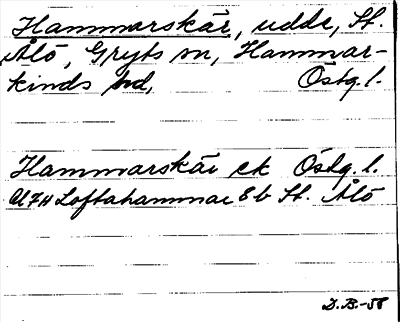 Hammarskär, udde, St.
Ålö, Gryts sn, Hammar-
kinds hd, Östg. l.
Hammarskär ek Östg. l.
Al74 Loftahammar 8b St. Ålö
D.B.-58